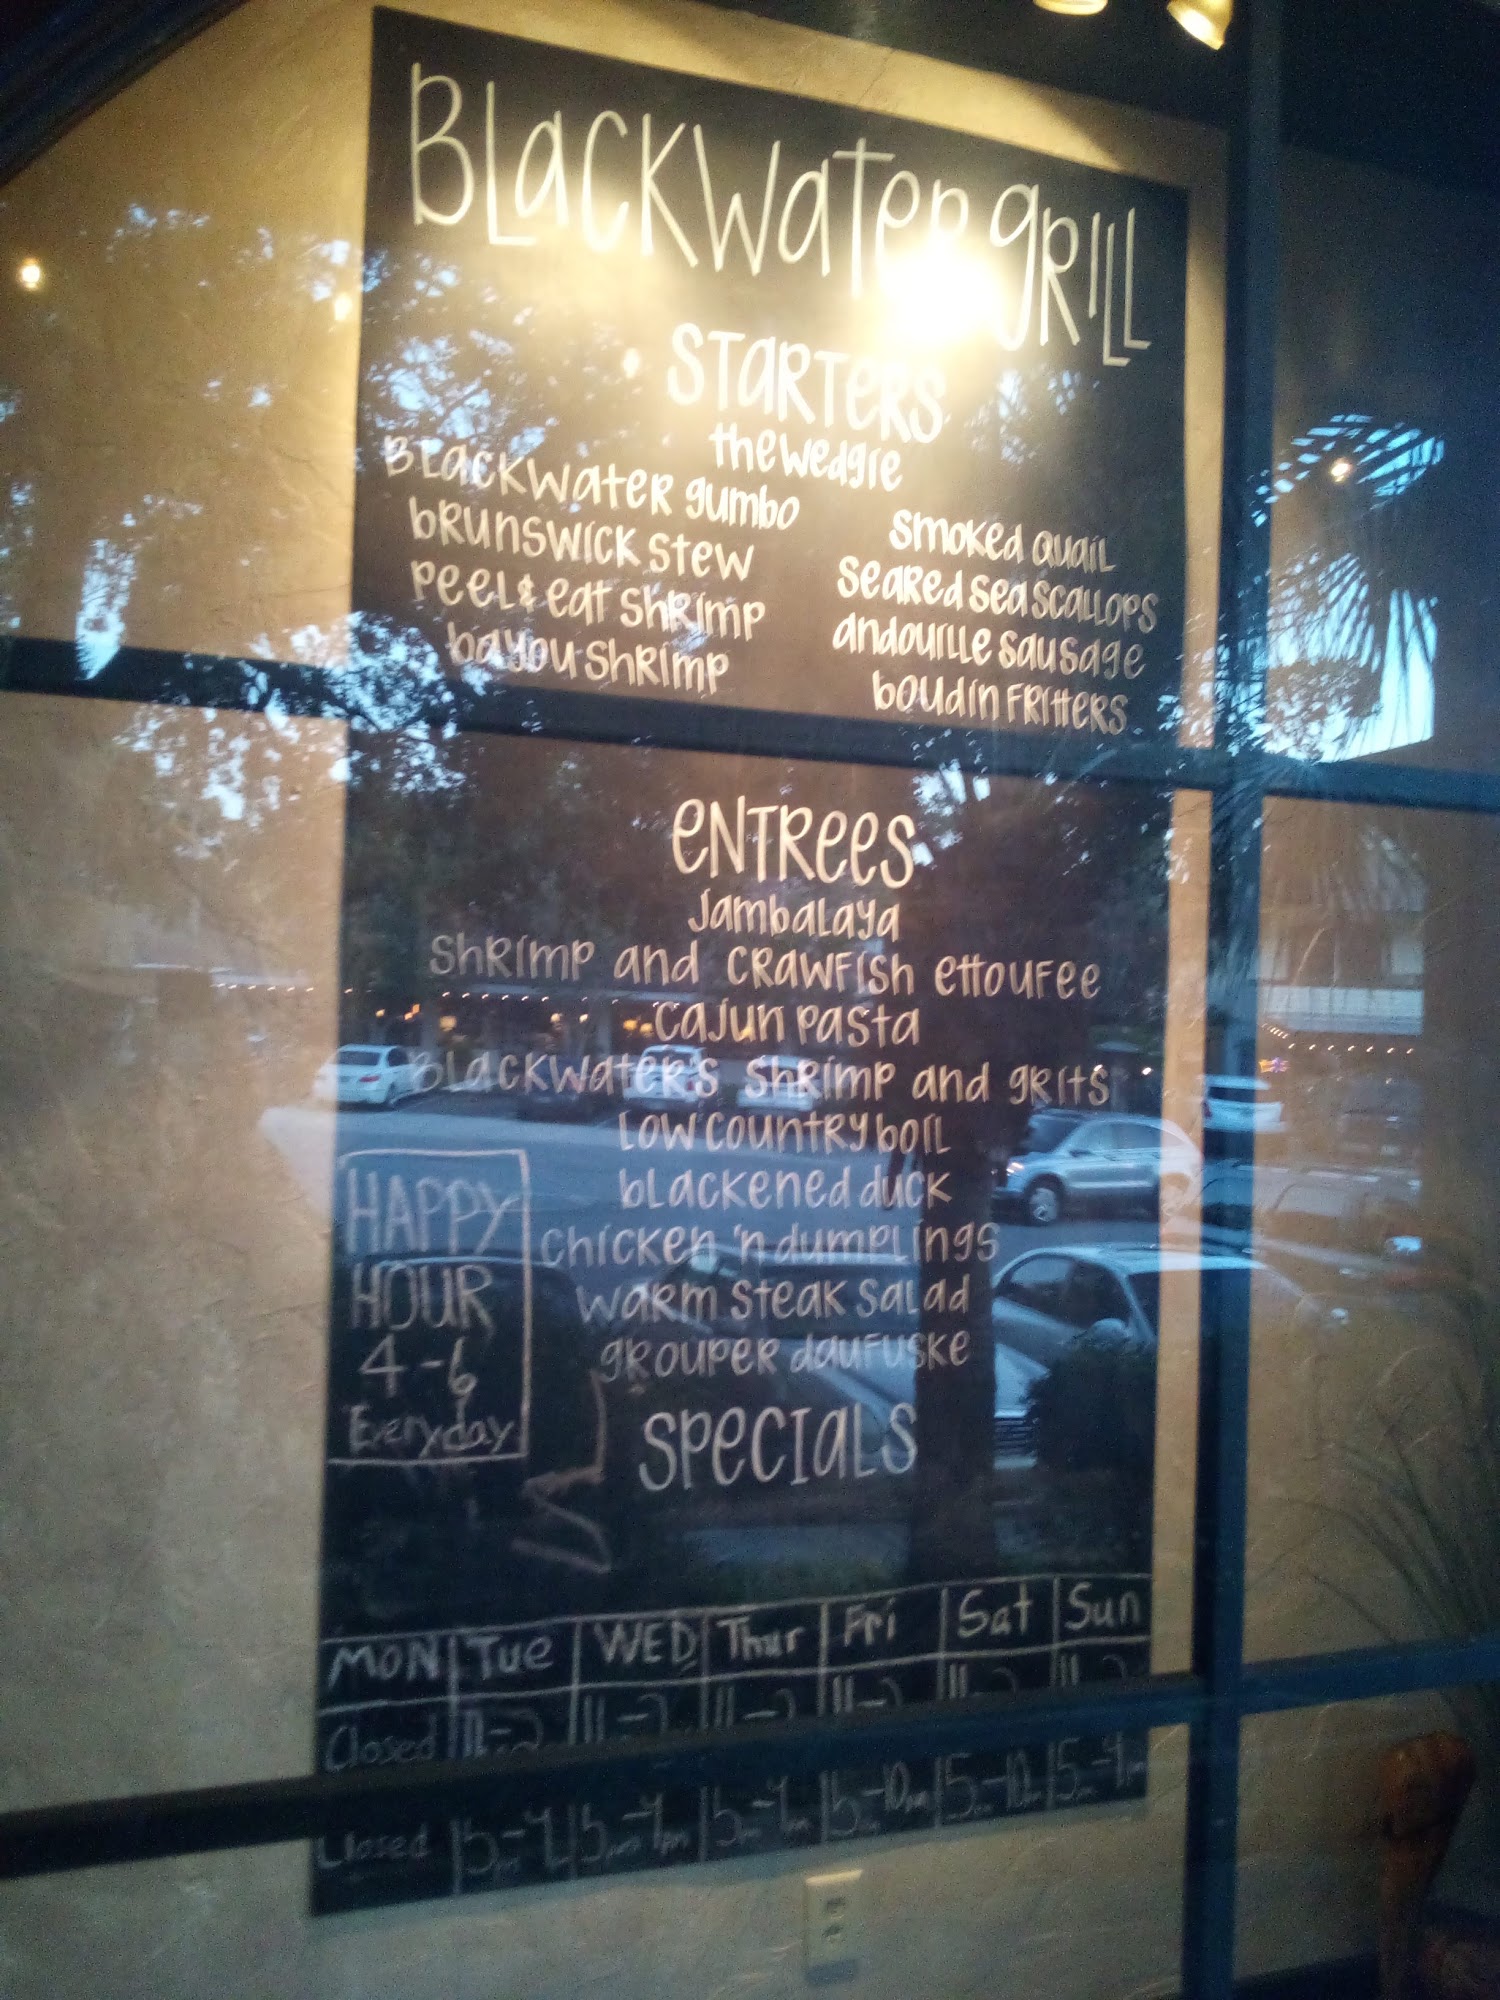 Blackwater Grill
Starters
the wedgie
Blackwater gumbo
brunswick stew
peel & eat shrimp
bayou shrimp
smoked quail
seared sea scallops
andouille sausage
boudin fritters
Entrees
Jambalaya
shrimp and crawfish ettoufee
cajun pasta
Blackwater's shrimp and grits
low country boil
blackened duck
chicken 'n dumplings
warm steak salad
grouper daufuske
HAPPY
HOUR
4-6
Everyday
Specials
MON Tue WED Thur Fri Sat Sun
Closed 11-2 11-2 11-2 11-2 11-2 11-2
Closed 5pm-9 5pm-9pm 5-9 5-10pm 5-10 5-9pm